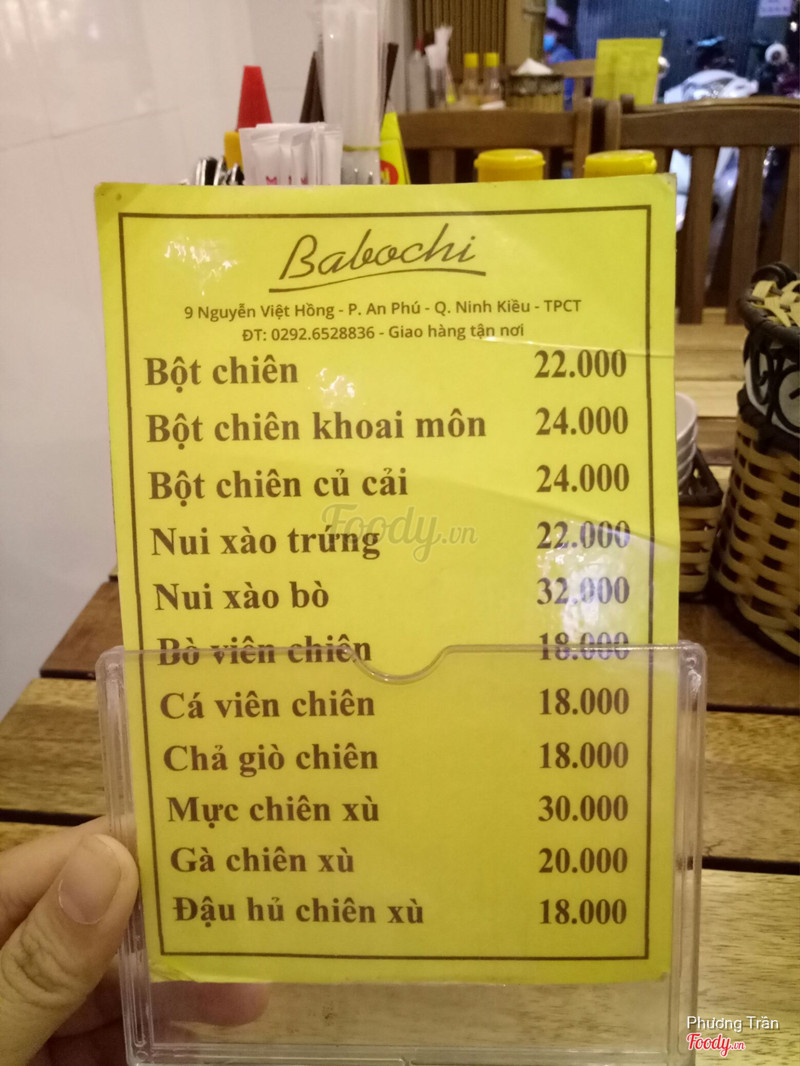 Babochi
9 Nguyễn Việt Hồng - P. An Phú - Q. Ninh Kiều - TPCT
ĐT: 0292.6528836 - Giao hàng tận nơi
Bột chiên 22.000
Bột chiên khoai môn 24.000
Bột chiên củ cải 24.000
Nui xào trứng 22.000
Nui xào bò 32.000
Bò viên chiên 18.000
Cá viên chiên 18.000
Chả giò chiên 18.000
Mực chiên xù 30.000
Gà chiên xù 20.000
Đậu hủ chiên xù 18.000
Foody.vn
Phương Trần
Foody.vn